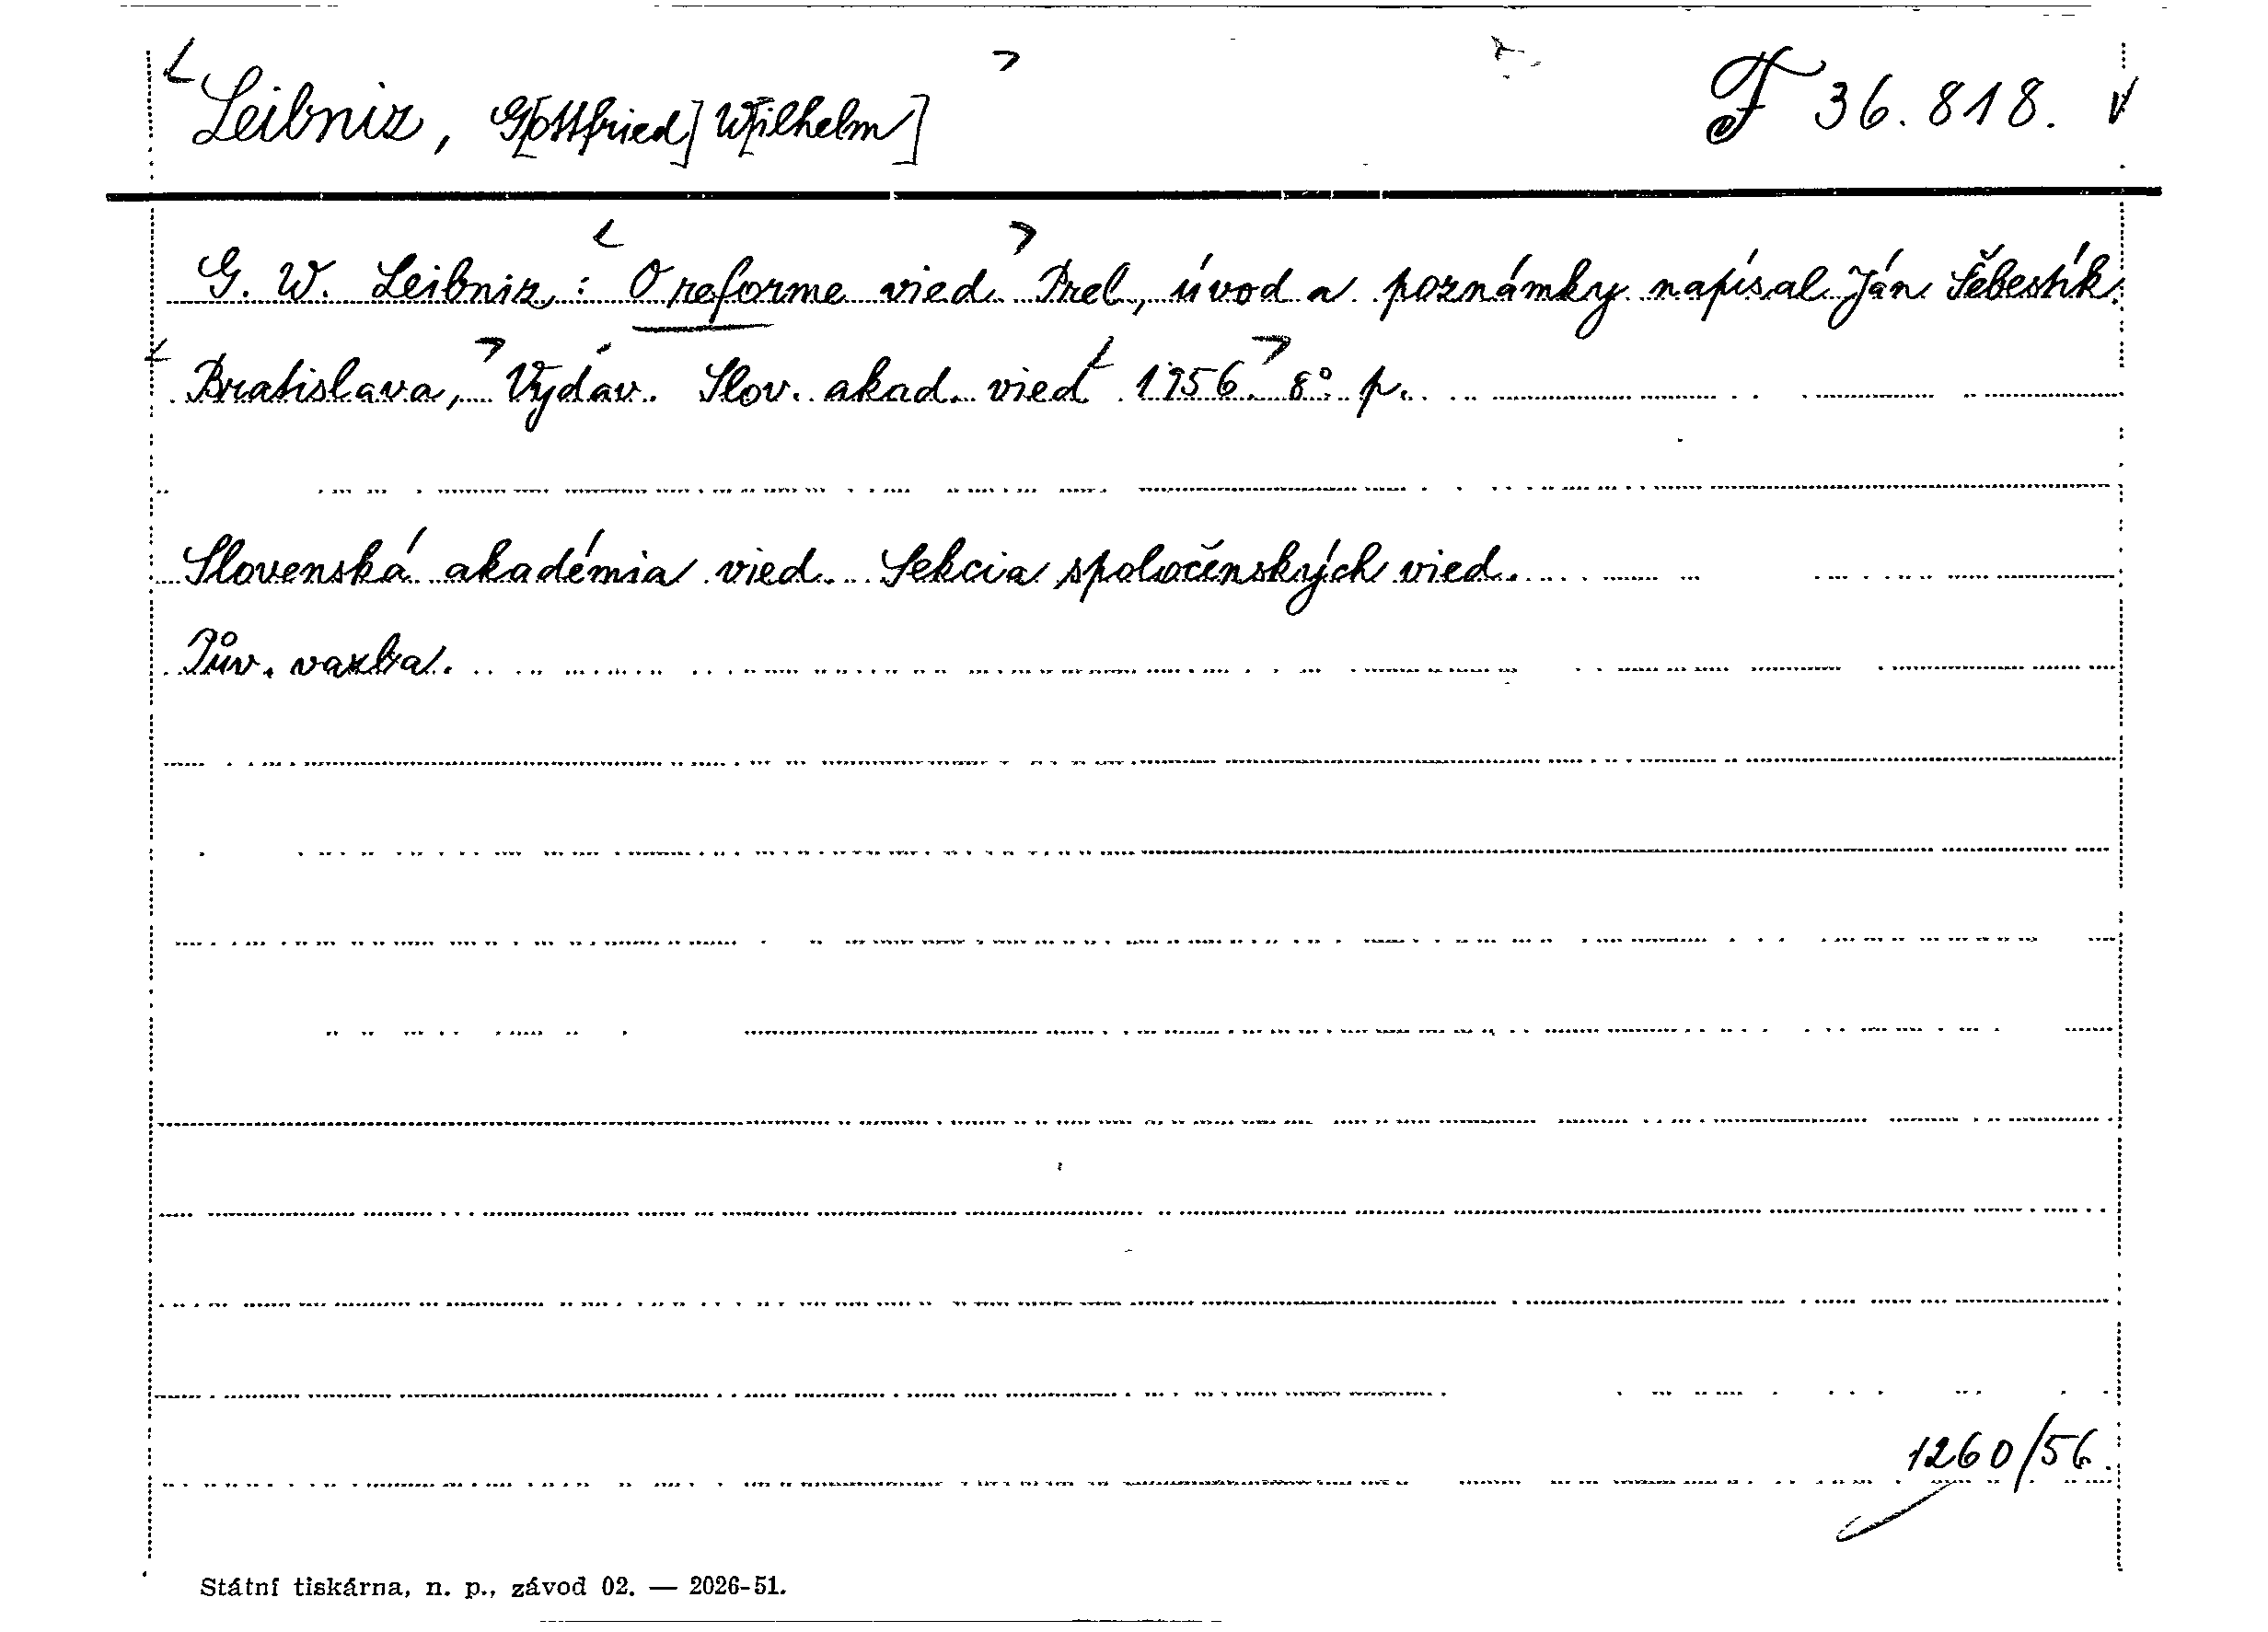 Leibniz, G[ottfried] W[ilhelm] F 36.818.
G. W. Leibniz: O reforme vied. Prel, úvod a poznámky napísal Ján Šebestík.
Bratislava, Vydav. Slov. akad. vied 1956. 8°. p.
Slovenská akadémia vied. Sekcia spoločenských vied.
Pův. vazba.
1260/56.
Státní tiskárna, n. p., závod 02. — 2026-51.